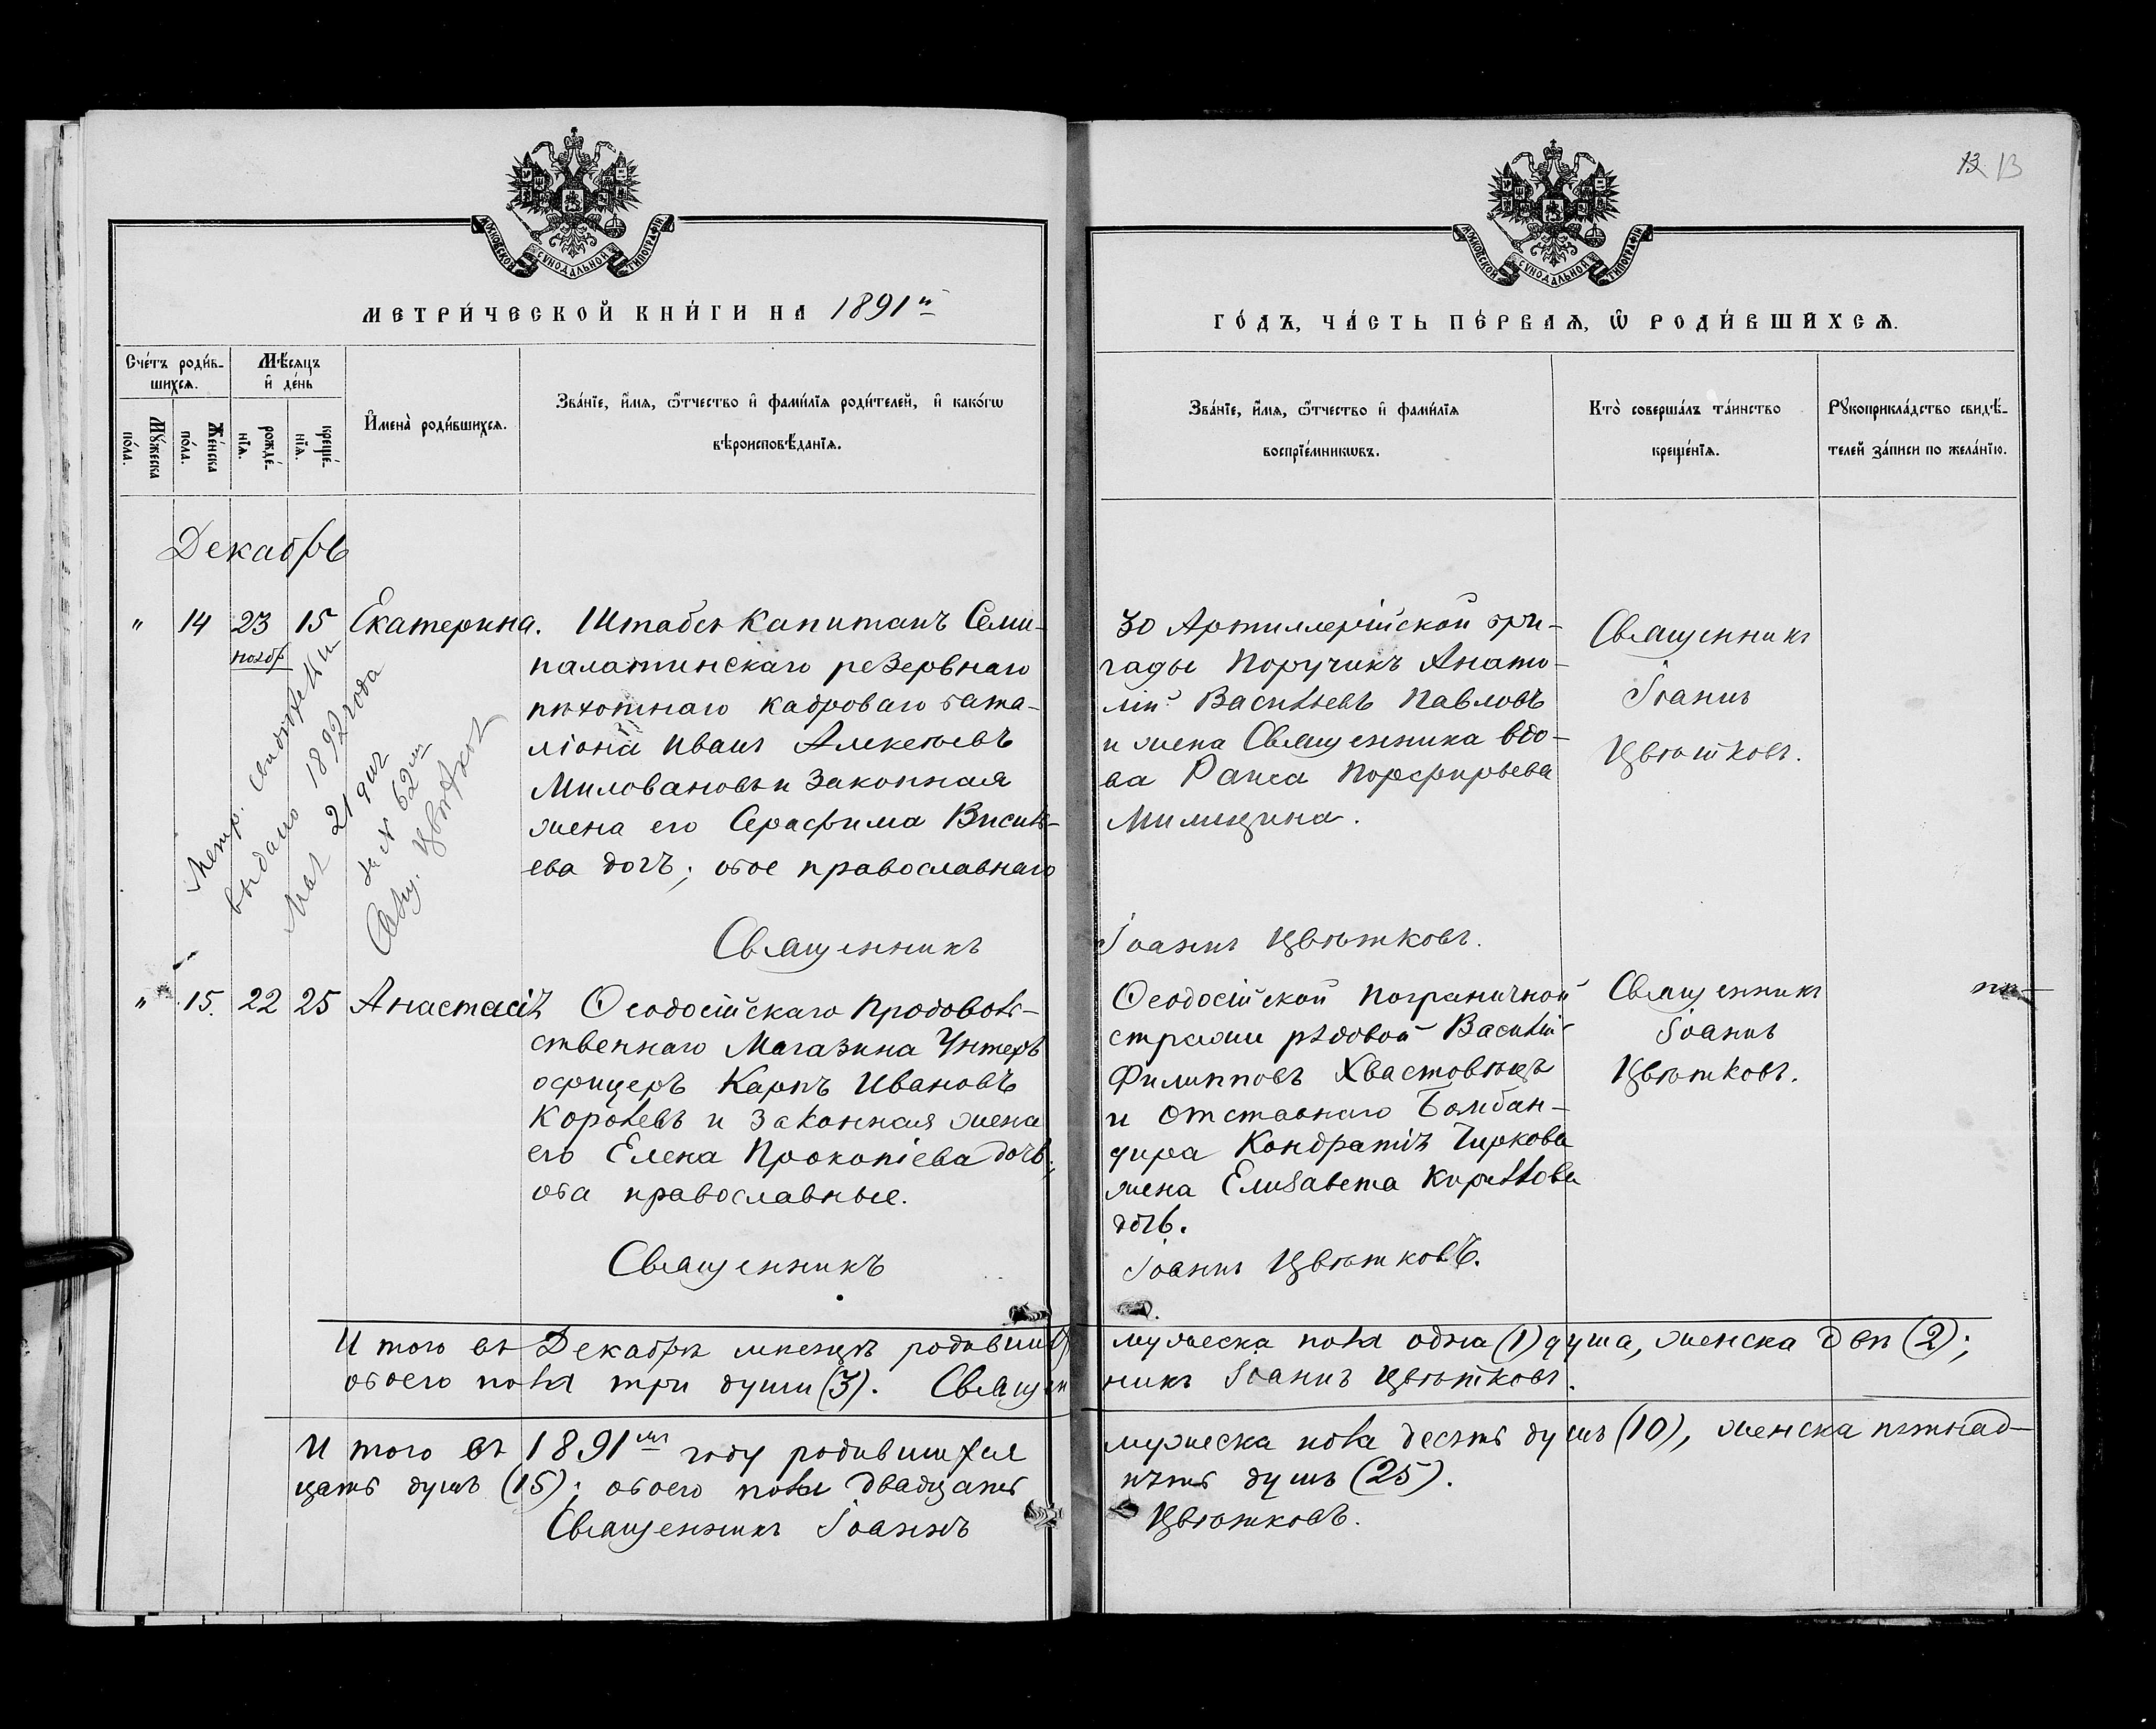 13 13
МОСКОВСКОЙ СѴНОДАЛЬНОЙ ТИПОГРАФІИ
МОСКОВСКОЙ СѴНОДАЛЬНОЙ ТИПОГРАФІИ
МЕТРИ́ЧЕСКОЙ КНИ́ГИ НА 1891й
ГО́ДЪ, ЧА́СТЬ ПЕ́РВАѦ, Ѡ҆ РОДИ́ВШИХСѦ.
Сче́тъ роди́в-
шихсѧ.
Мѣ́сѧцъ
и҆ де́нь
Мꙋ́жеска
по́ла.
Же́нска
по́ла.
рожде́-
нїѧ.
креще́-
нїѧ.
И҆мена̀ роди́вшихсѧ.
Зва́нїе, и҆́мѧ, ѻ҆́тчество и҆ фами́лїѧ роди́телей, и҆ како́гѡ
вѣроисповѣ́данїѧ.
Зва́нїе, и҆́мѧ, ѻ҆́тчество и҆ фами́лїѧ
воспрїе́мникѡвъ.
Кто̀ соверша́лъ та́инство
креще́нїѧ.
Рꙋкоприкла́дство свидѣ́-
телей за́писи по жела́нїю.
Декабрь
" 14 23 15 Екатерина.
ноябр
Штабсъ Капитанъ Семи-
палатинскаго резервнаго
пѣхотнаго кадроваго бата-
ліона Иванъ Алексѣевъ
Миловановъ и законная
жена его Серафима Василь-
ева дочъ; обое православнаго
Священникъ
Метр.
выдано 1892 года
Мая 21 дня
за № 62м
Свящ. Цвѣтков
30 Артиллерійской бри-
гады Поручикъ Анато-
лій Васильевъ Павловъ
и жена Священника вдо-
ва Раиса Порфирьева
Милицина.
Іоаннъ Цвѣтковъ.
Священникъ
Іоаннъ
Цвѣтковъ.
" 15. 22 25 Анастасія
Ѳеодосійскаго Продоволь-
ственнаго Магазина Унтеръ
офицеръ Карпъ Ивановъ
Королевъ и законная жена
его Елена Прокопіева дочь;
оба православные.
Священникъ
Ѳеодосійской Пограничной
стражи рядовой Василій
Филипповъ Хвастовецъ
и отставнаго Бомбан-
дира Кондратія Чиркова
жена Елизавета Кириллова
дочь.
Іоаннъ Цвѣтковъ.
Священникъ
Іоаннъ
Цвѣтковъ.
И того въ Декабрѣ мѣсяцѣ родившихся
мужеска пола одна (1) душа, женска двѣ (2);
обоего пола три души (3). Священ
никъ Іоаннъ Цвѣтковъ.
И того въ 1891мъ году родившихся
мужеска пола десять душъ (10), женска пятнад-
цать душъ (15); обоего пола двадцать
пять душъ (25).
Священникъ Іоаннъ
Цвѣтковъ.